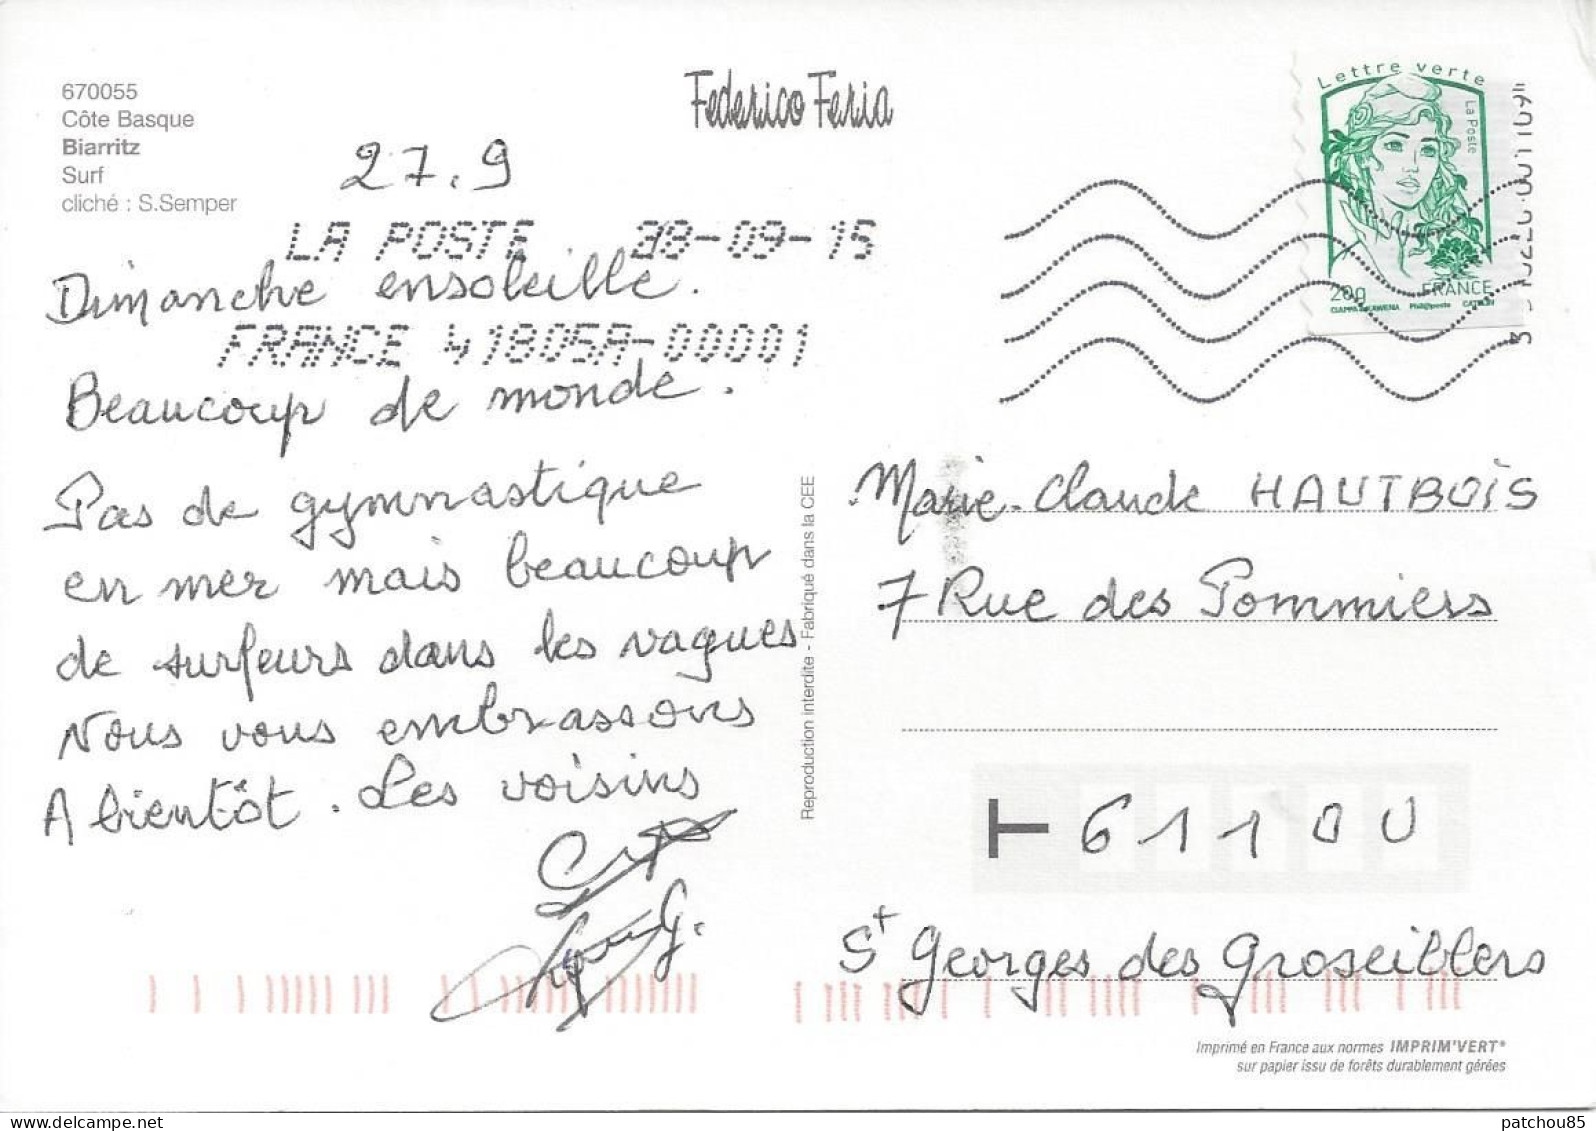 670055
Côte Basque
Biarritz
Surf
cliché : S.Semper
Federico Feria
27.9
LA POSTE 28-09-15
Dimanche ensoleillé.
FRANCE 41805A-00001
Beaucoup de monde.
Pas de gymnastique
en mer mais beaucoup
de surfeurs dans les vagues
Nous vous embrassons
A bientôt. Les voisins
G.
Reproduction interdite - Fabriqué dans la CEE
Lettre verte
La Poste
20g
FRANCE
CIAPPA & KAWENA Phil@poste
Marie-Claude HAUTBOIS
7 Rue des Pommiers
T 61100
St Georges des Groseillers
Imprimé en France aux normes IMPRIM'VERT®
sur papier issu de forêts durablement gérées
patchou85